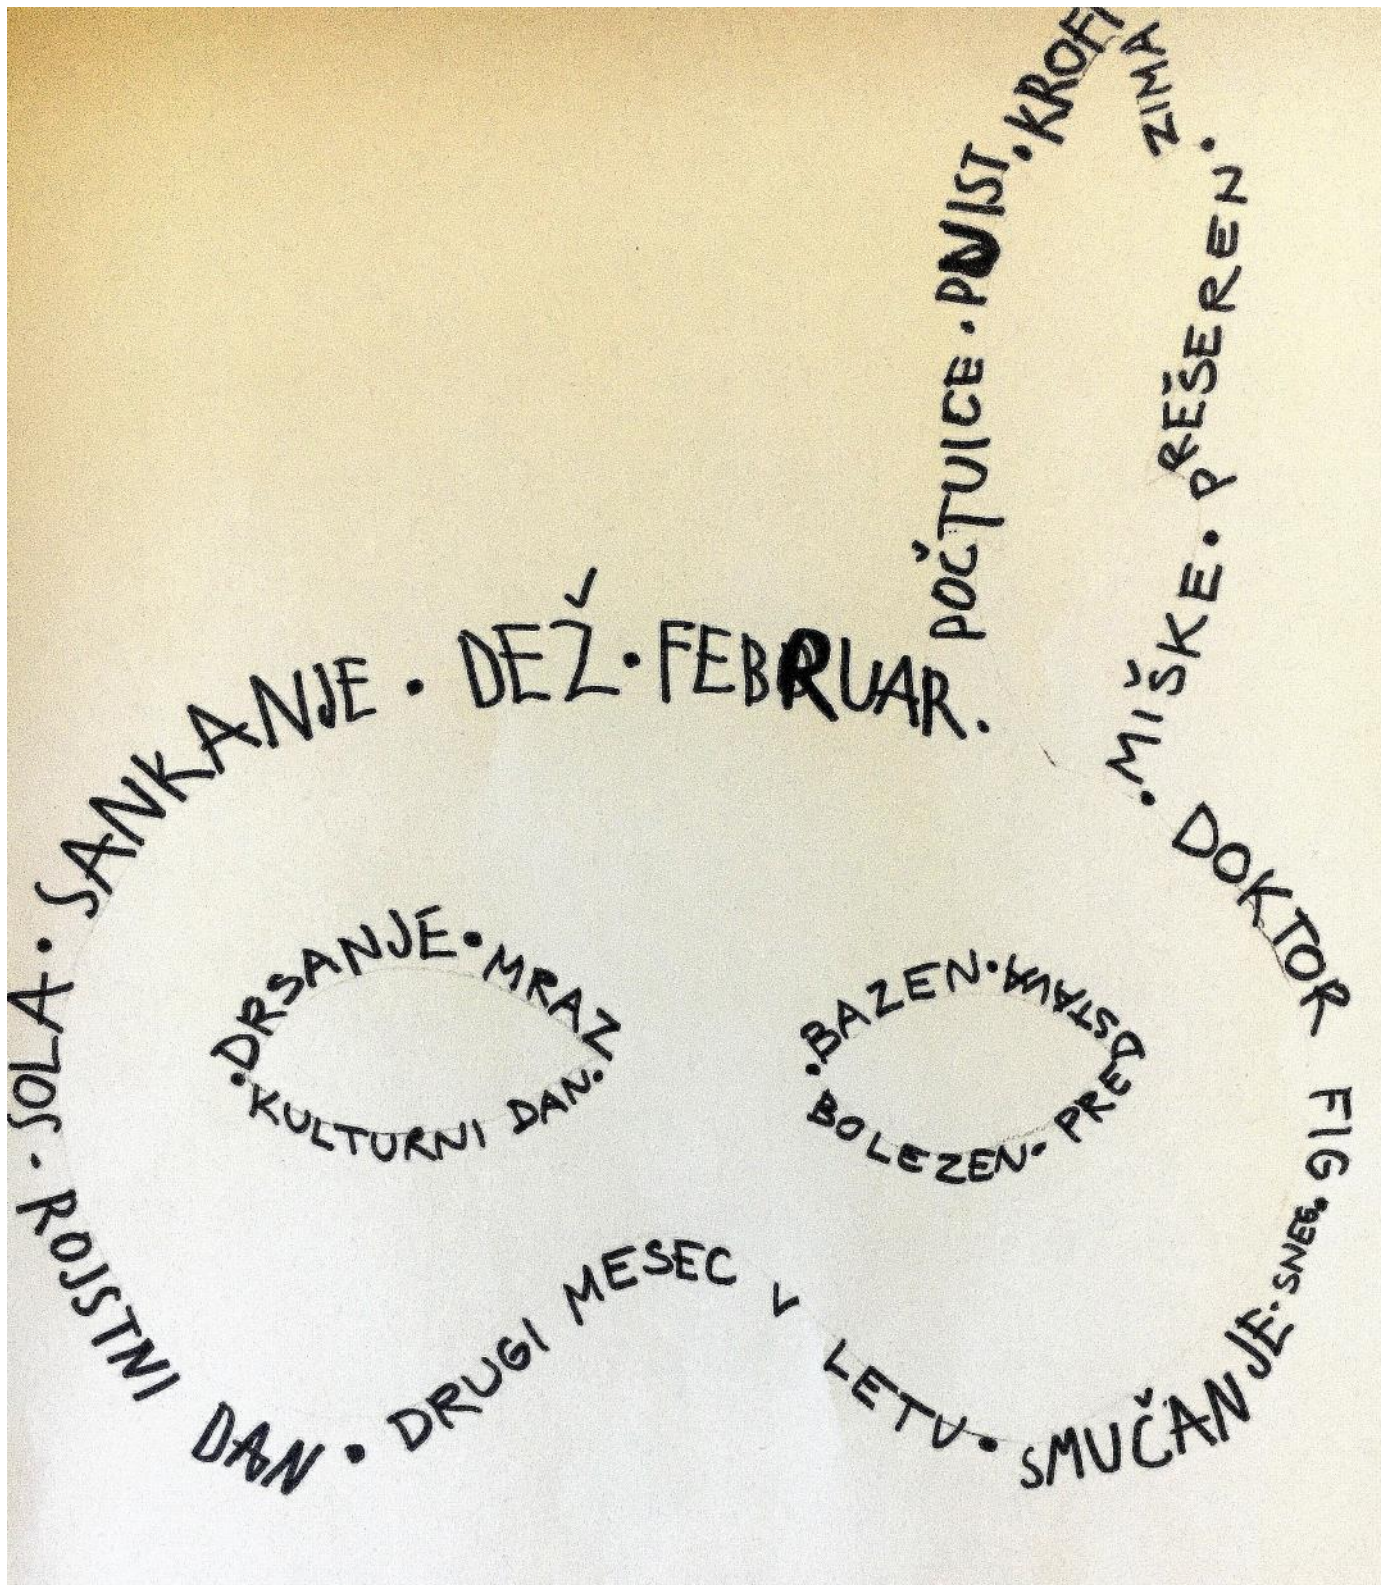 SANKANJE . DEŽ . FEBRUAR .
POČTUICE . PUNIST .
ZIMA .
PREŠEREN .
MIŠKE .
DOKTOR FIG .
SNEG .
SMUČANJE .
DRUGI MESEC V LETU .
ROJSTNI DAN .
SOLA .
DRSANJE . MRAZ
KULTURNI DAN .
BAZEN .
PREDSTAVA .
BOLEZEN .